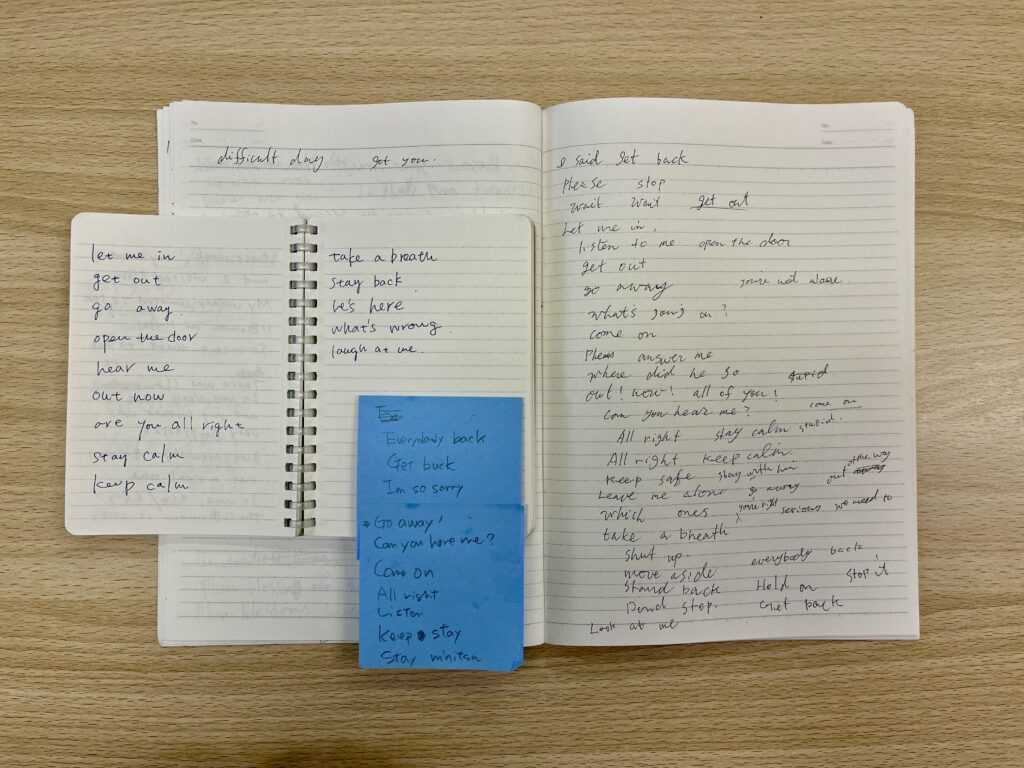 No.
Date
difficult day got you.
let me in
get out
go away.
open the door
hear me
out now
are you all right
stay calm
keep calm
take a breath
stay back
he's here
what's wrong.
laugh at me.
Everybady back
Get buck
I'm so sorry
* Go away!
Can you here me?
Come on
All right
Listen
Keep stay
Stay
No.
Date
I said get back
Please stop
wait wait get out
Let me in.
listen to me open the door
get out
go away you're not alone.
what's going on?
come on
answer me
where did he go stupid
out! now! all of you!
can you hear me? come on
All right stay calm stupid.
All right keep calm.
keep safe stay with him
Leave me alone go away out of the way away
which ones you're right serious we need to
take a breath
shut up.
move aside everybody back
Stand back Hold on Stop it!
stop. Get back
Look at me